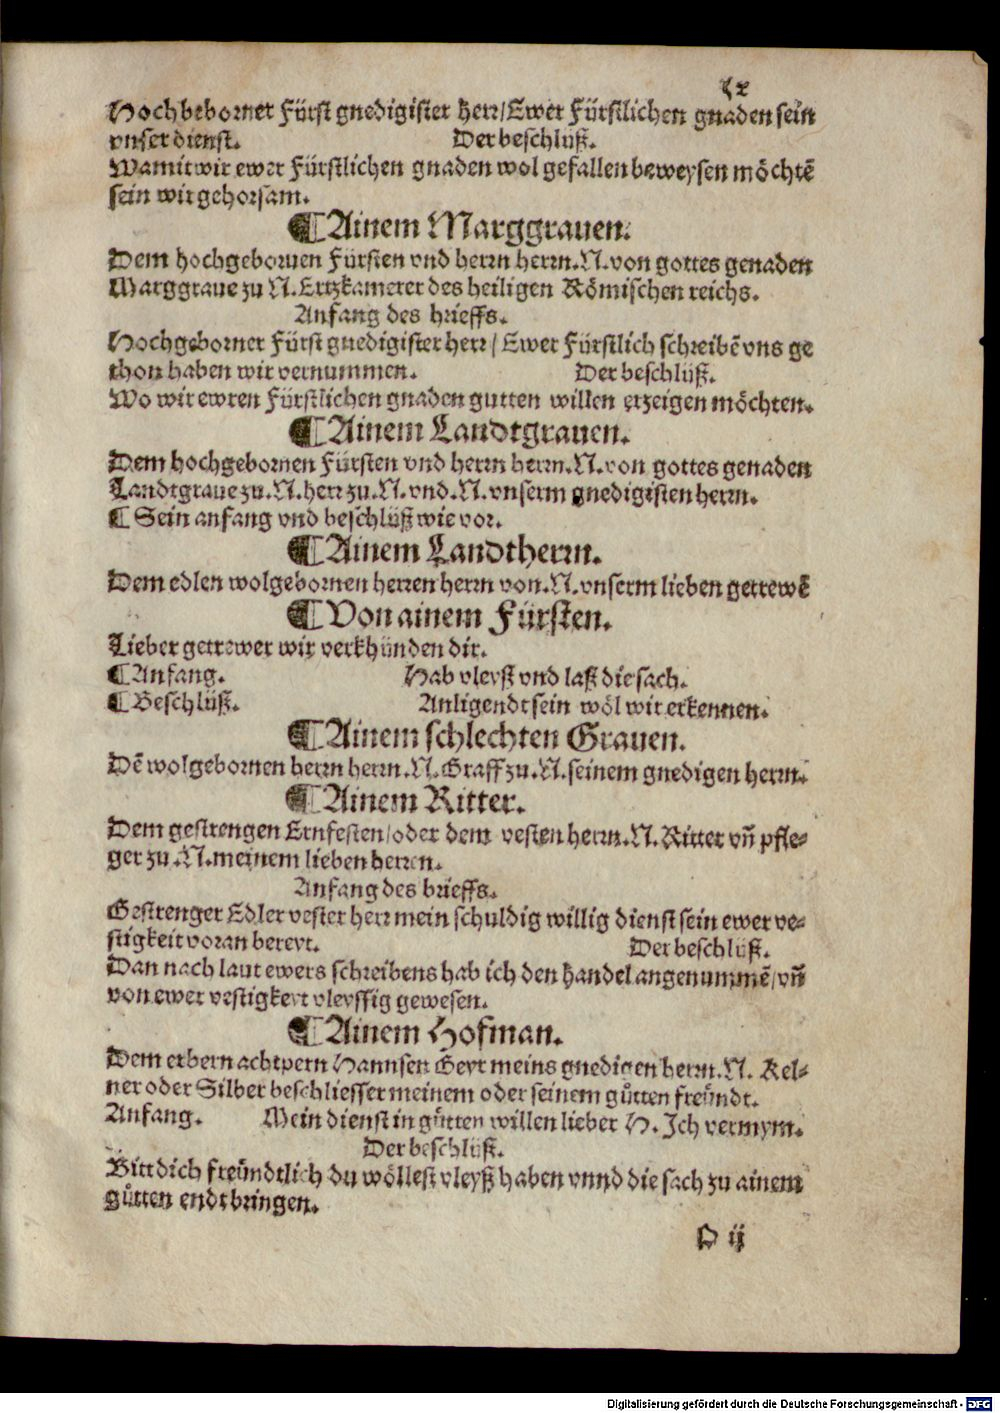 lx
Hochgeborner Fürst gnedigister herr/Ewer Fürstlichen gnaden sein
vnser dienst. Der beschlüß.
Wamit wir ewer Fürstlichen gnaden wol gefallen beweysen möchtē
sein wir gehorsam.
¶ Ainem Marggrauen.
Dem hochgebornen Fürsten vnd herrn herrn.N.von gottes genaden
Marggraue zu N.Ertzkamerer des heiligen Römischen reichs.
Anfang des brieffs.
Hochgeborner Fürst gnedigister herr/Ewer Fürstlich schreibē vns ge
thon haben wir vernummen. Der beschlüß.
Wo wir ewren Fürstlichen gnaden gutten willen erzeigen möchten.
¶ Ainem Landtgrauen.
Dem hochgebornen Fürsten vnd herrn herrn.N.von gottes genaden
Landtgraue zu.N.herr zu.N.vnd.N.vnserm gnedigisten herrn.
¶ Sein anfang vnd beschlüß wie vor.
¶ Ainem Landtherrn.
Dem edlen wolgebornen herren herrn von.N.vnserm lieben getrewē
¶ Von ainem Fürsten.
Lieber getrewer wir verkhünden dir.
¶ Anfang. Hab vleyß vnd laß die sach.
¶ Beschlüß. Anligendt sein wöl wir erkennen.
¶ Ainem schlechten Grauen.
Dē wolgebornen herrn herrn.N.Graff zu.N.seinem gnedigen herrn.
¶ Ainem Ritter.
Dem gestrengen Ernfesten/oder dem vesten herrn.N.Ritter vn̄ pfle-
ger zu.N.meinem lieben herren.
Anfang des brieffs.
Gestrenger Edler vester herr mein schuldig willig dienst sein ewer ve-
stigkeit voran bereyt. Der beschlüß.
Dan nach laut ewers schreibens hab ich den handel angenummē/vn̄
von ewer vestigkeyt vleyssig gewesen.
¶ Ainem Hofman.
Dem erbern achtpern Hannsen Geyr meins gnedigen herrn.N. Kel-
ner oder Silber beschliesser meinem oder seinem gůtten freündt.
Anfang. Mein dienst in gůtten willen lieber H.Ich vermym.
Der beschlüß.
Bitt dich freündtlich du wöllest vleyß haben vnnd die sach zu ainem
gůtten endt bringen.
P ij
Digitalisierung gefördert durch die Deutsche Forschungsgemeinschaft - DFG